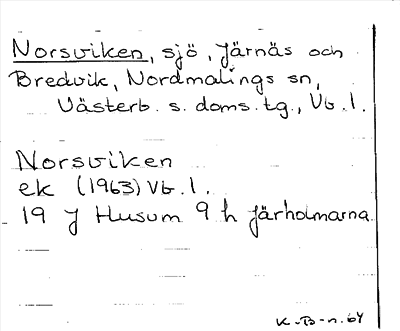 Norsviken, sjö, Järnäs och
Bredvik, Nordmalings sn,
Västerb. s. doms. tg., Vb. l.
Norsviken
ek (1963) Vb. l.
19 J Husum 9 h Järholmarna
K-B-n. 64